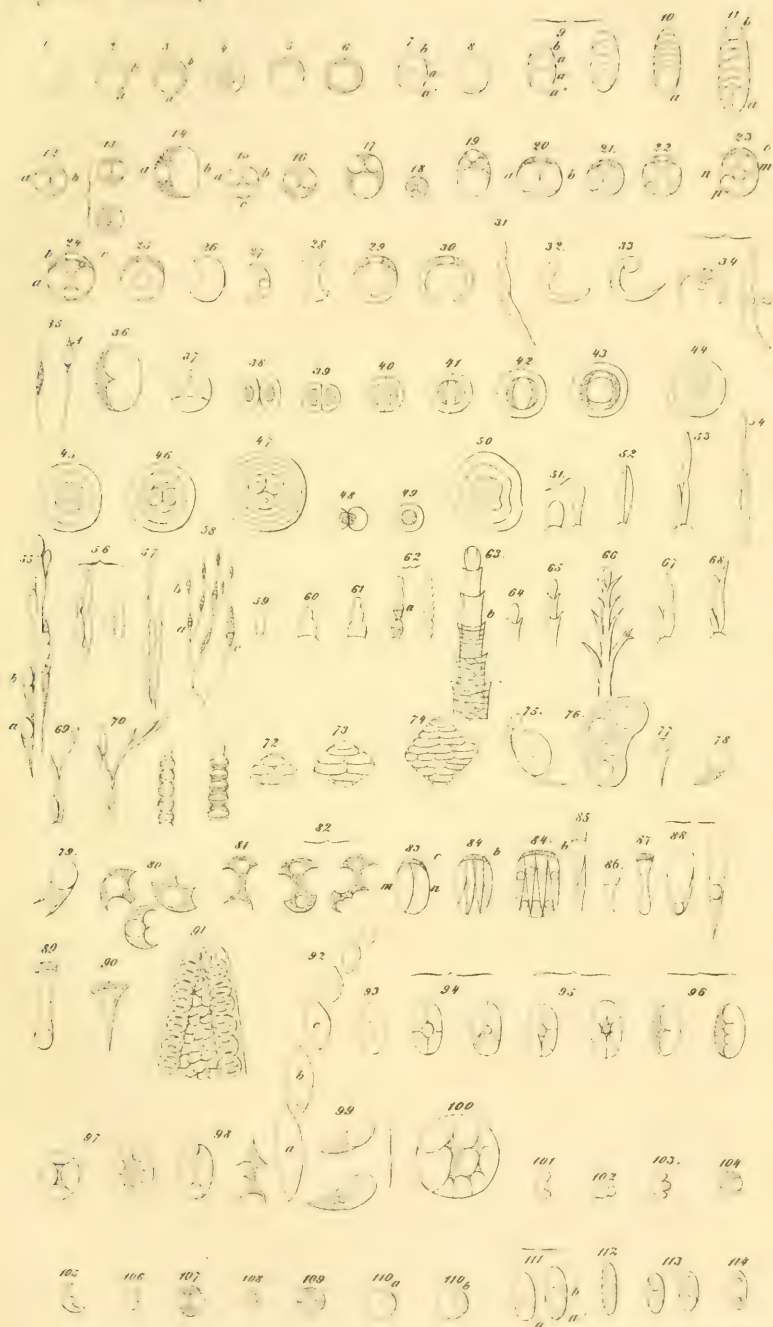 1 2 3 4 5 6 7 8 9 10 11
b b b b b
a a a a
a a a a
12 13 14 15 16 17 18 19 20 21. 22 23
a b a b a b a b n m
c p
24 25 26 27 28 29 30 31 32. 33 34
b c
a
35 36 37 38 39 40 41 42 43 44
45 46 47 48 49 50 51 52 53 54
55 56 57 58 59 60 61 62 63. 64 65 66 67 68
b b a b
a c
a
69 70 72 73 74 75. 76. 77 78
79. 80 81 82 83 84 84. 85 86. 87 88
c b b
m n
89 90 91 92 93 94 95 96
c
b
97 98 99 100 101 102 103. 104
a
105 106 107 108 109 110 a 110 b 111 112 113 114
b
a a